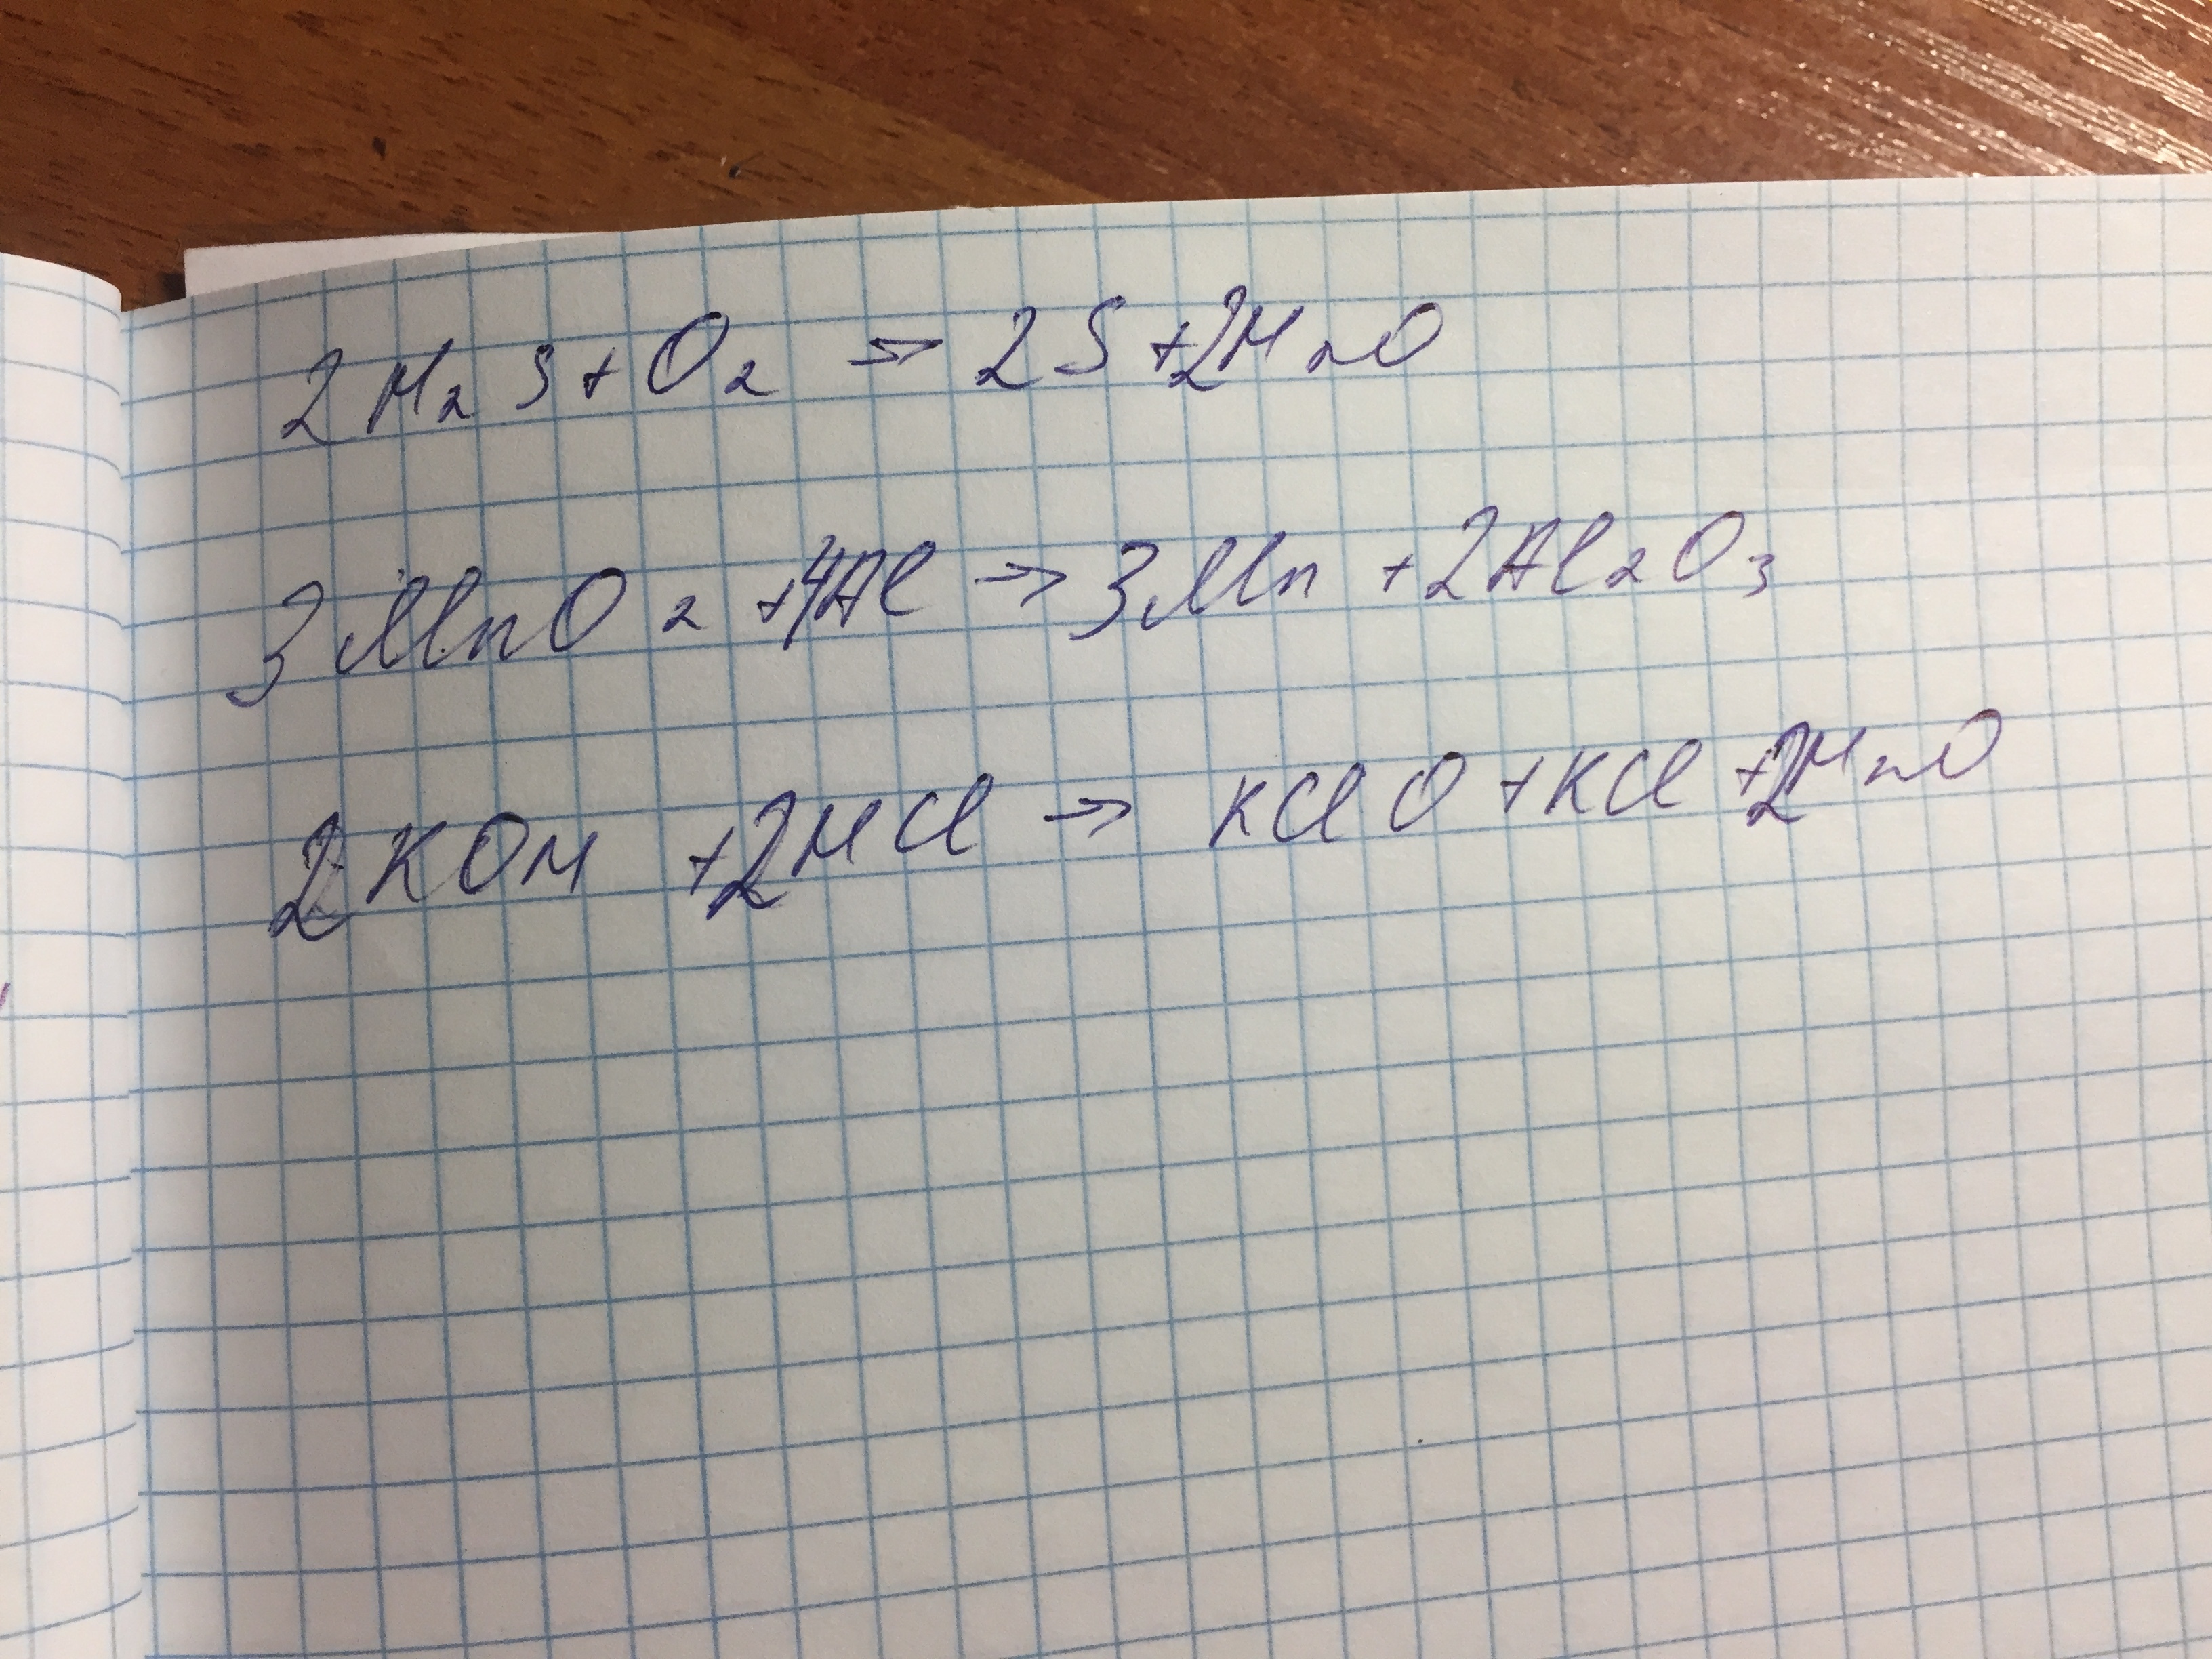 2H₂S + O₂ → 2S + 2H₂O
3MnO₂ + 4Al → 3Mn + 2Al₂O₃
2KOH + 2HCl → KClO + KCl + 2H₂O